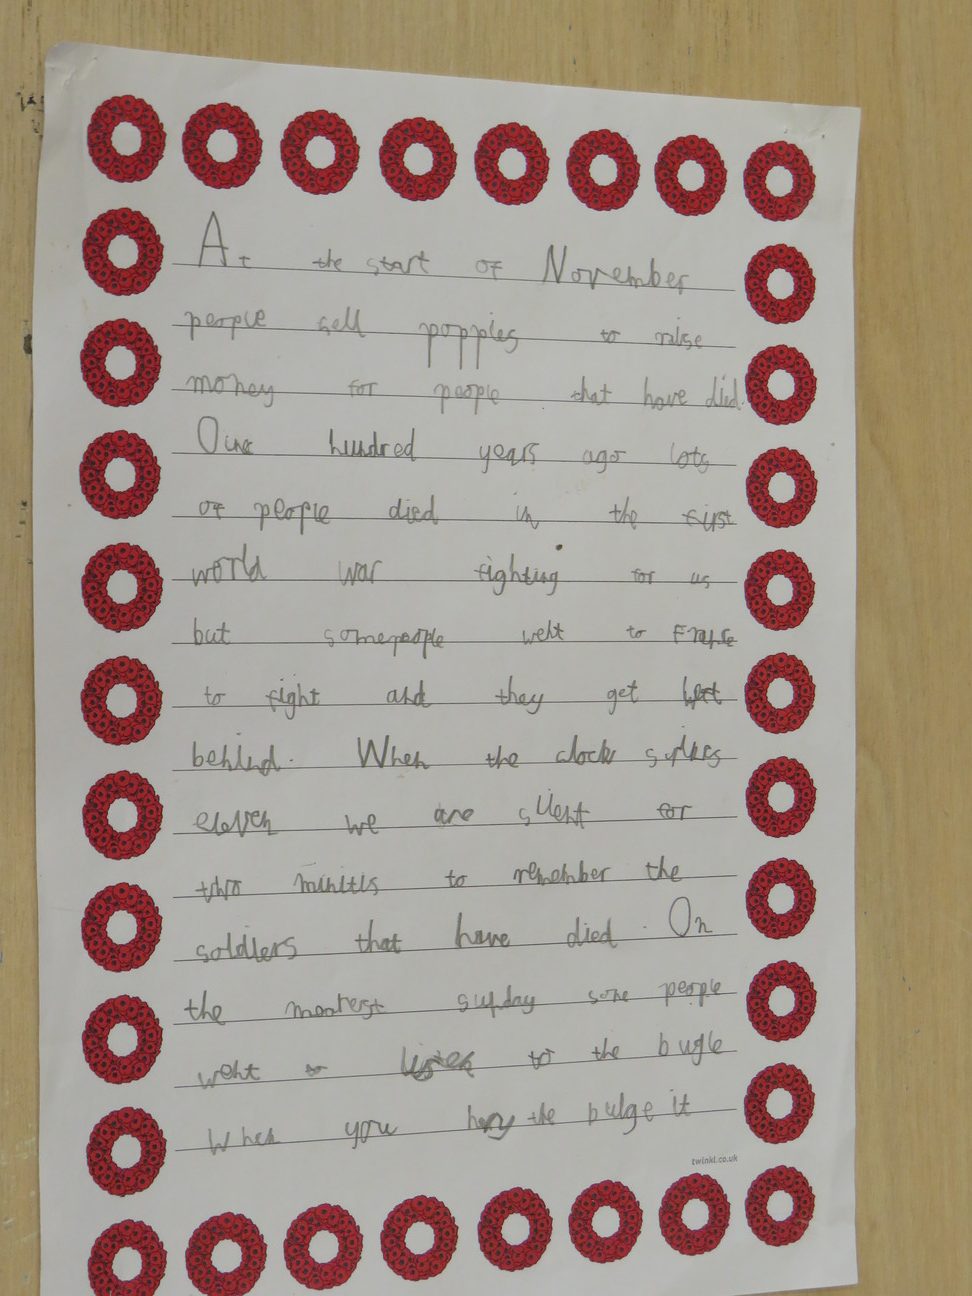 At the start of November
people sell poppies to raise
money for people that have died.
One hundred years ago lots
of people died in the first
world war fighting for us
but some people went to France
to fight and they get left
behind. When the clock strikes
eleven we are silent for
two
to remember the
soldiers that have died. On
the
sunday some people
went to listen to the bugle
When you
the bulge it
twinkl.co.uk